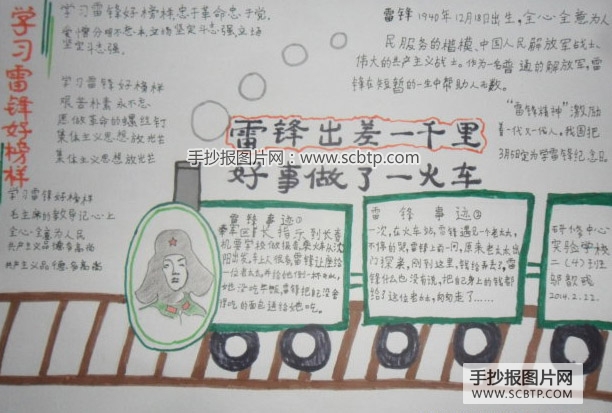 学习雷锋好榜样
学习雷锋好榜样忠于革命忠于党,
爱憎分明不忘本立场坚定斗志强立场
坚定斗志强.
学习雷锋好榜样
艰苦朴素永不忘
愿做革命的螺丝钉
集体主义思想放光芒
集体主义思想放光芒
学习雷锋好榜样
毛主席的教导记心上
全心全意为人民
共产主义品德多高尚
共产主义品德多高尚
雷锋1940年12月18日出生,全心全意为人
民服务的楷模、中国人民解放军战士、
伟大的共产主义战士。作为一名普通的解放军,雷
锋在短暂的一生中帮助人无数。
“雷锋精神”激励
着一代又一代人,我国把
3月5日定为学雷锋纪念日
雷锋出差一千里
手抄报图片网:www.scbtp.com
好事做了一火车
雷锋事迹①
长指示到长春
机要学校做报告.乘火车从沈
阳出发,车上人很多,雷锋让座给
一位老大娘,并给她倒一杯水,
她没吃早饭,雷锋把自己没舍
得吃的面包送给她吃。
雷锋事迹②
一次,在火车站,雷锋遇见一个老大娘,
不停的哭,雷锋上前一问,原来老大娘出
门探亲,刚到这里,钱给丢了,雷
锋什么也没有说,把自己身上的钱都
给了这位老大娘,匆匆走了……
研修中心
实验学校
二(4)班
邬歆
2014.2.22.
手抄报图片网
WWW.SCBTP.COM